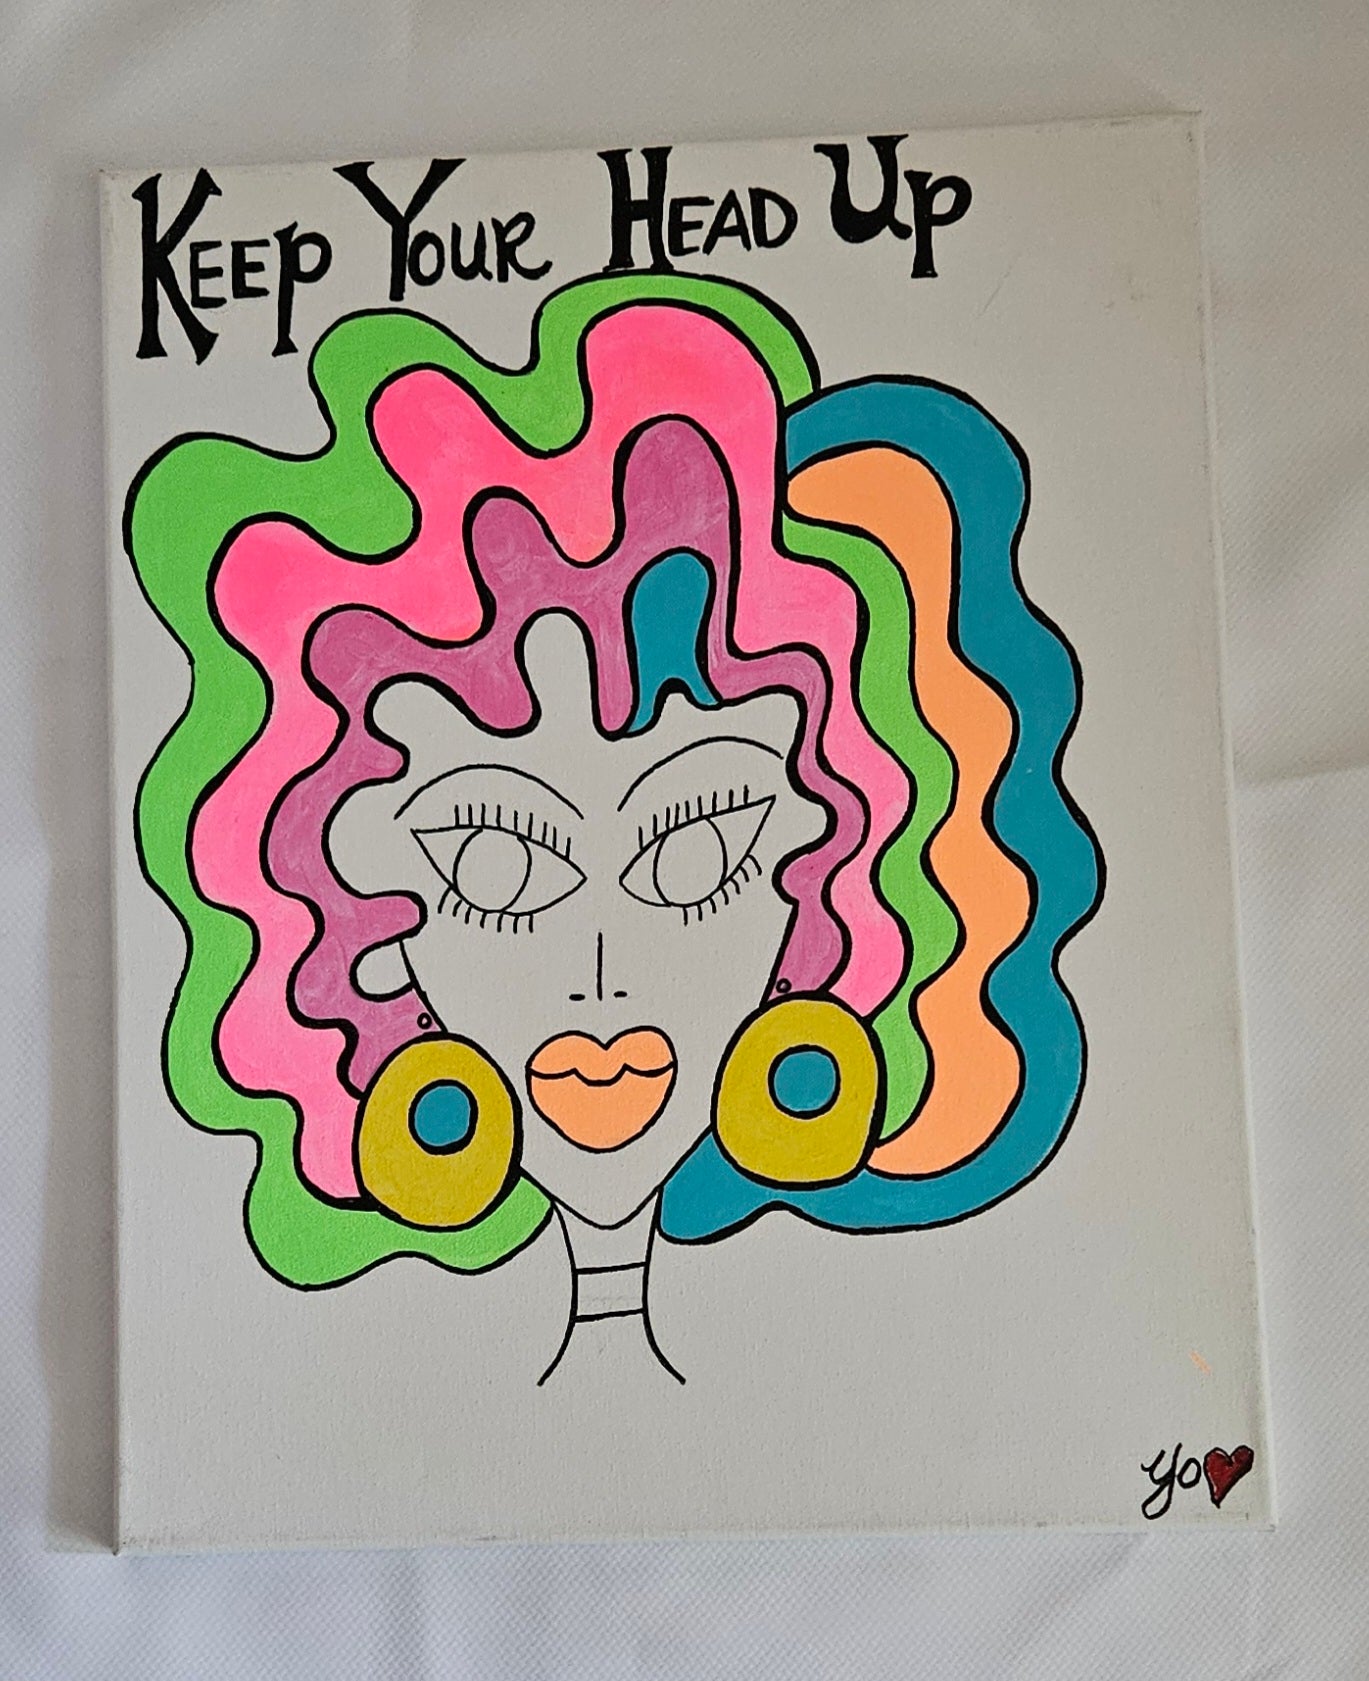 Keep Your Head Up
Yo